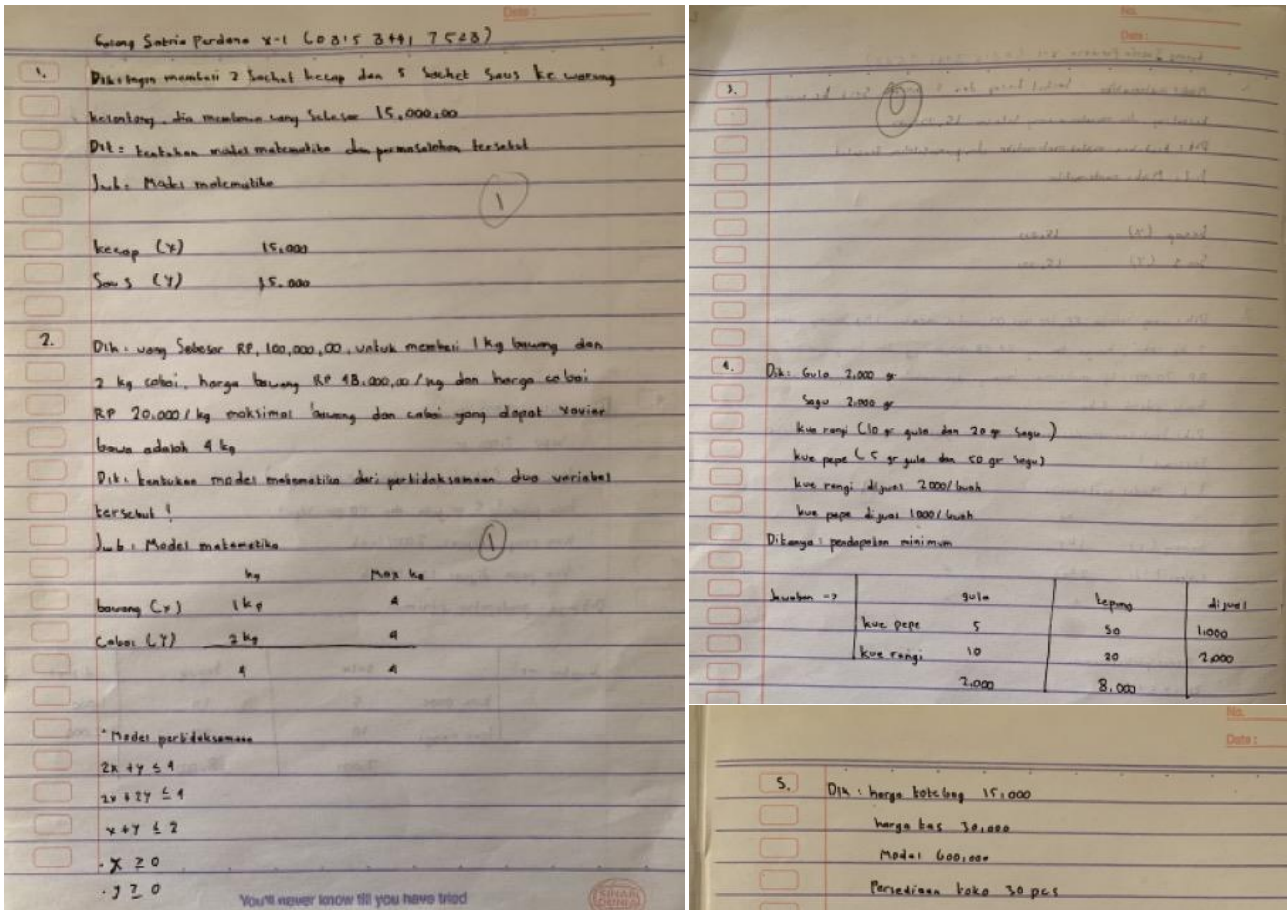 Date :
Galang Satria Perdana X-1 (0815 3441 7523)
1. Dik : Ingin membeli 2 Sachet kecap dan 5 Sachet Saus ke warung
kelontong, dia membawa uang Sebesar 15.000,00
Dit : tentukan model matematika dan permasalahan tersebut
Jwb : Model matematika
1
kecap (x) 15.000
Saus (y) 15.000
2. Dik : uang Sebesar RP. 100,000,00, untuk membeli 1 kg bawang dan
2 kg cabai, harga bawang RP 48.000,00/kg dan harga cabai
RP 20.000/kg maksimal bawang dan cabai yang dapat xavier
bawa adalah 4 kg
Dit : tentukan model matematika dari pertidaksamaan dua variabel
tersebut !
Jwb : Model matematika
1
kg Max kg
bawang (x) 1 kg 4
Cabai (y) 2 kg 4
4 4
* Model pertidaksamaan
2x + y ≤ 4
2x + 2y ≤ 4
x + y ≤ 2
· x ≥ 0
· y ≥ 0
You'll never know till you have tried
SINAR DUNIA
No.
Date :
3.
0
4. Dik : Gula 2.000 gr
Sagu 2.000 gr
kue rangi (10 gr gula dan 20 gr Sagu)
kue pepe (5 gr gula dan 50 gr Sagu)
kue rangi dijual 2000/buah
kue pepe dijual 1000/buah
Ditanya : pendapatan minimum
Jawaban -> gula tepung dijual
kue pepe 5 50 1.000
kue rangi 10 20 2.000
2.000 8.000
No.
Date :
5. Dik : harga kotelang 15.000
harga tas 30.000
Modal 600.000
Persediaan toko 30 pcs